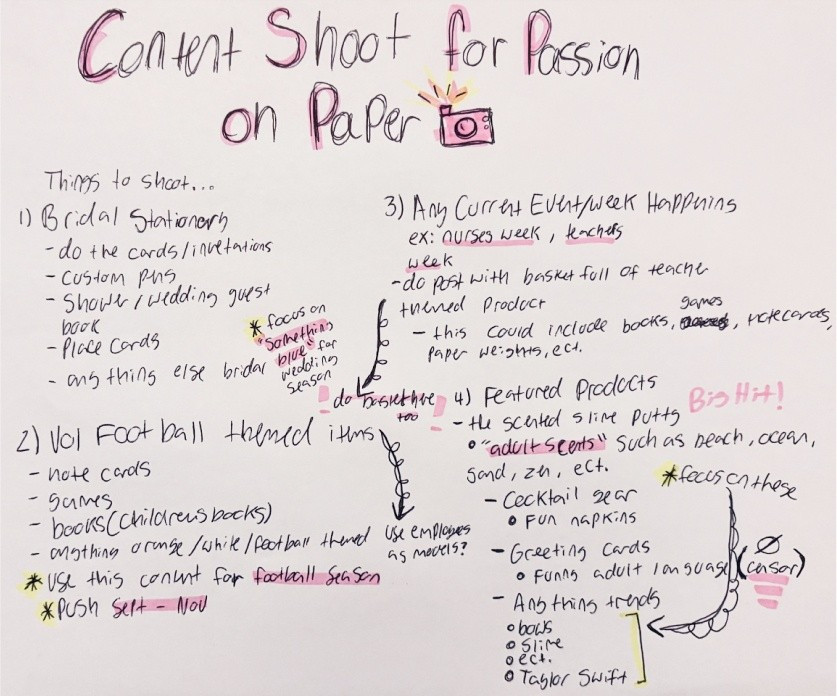 Content Shoot for Passion
on Paper
Things to shoot...
1) Bridal Stationery
- do the cards/invetations
- custom pens
- Shower/wedding guest
book
- Place Cards
- any thing else bridal
* focus on
"something
blue" for
wedding
season
2) Vol Football themed items
- note cards
- games
- books (childrens books)
- anything orange/white/football themed
* use this content for football season
* push Sept - Nov
use employees
as models?
3) Any Current Event/week Happening
ex: nurses week, teachers
week
- do post with basket full of teacher
themed product
- this could include books, games, notecards,
paper weights, ect.
! do basket here !
too
4) Featured Products
Big Hit!
- the scented slime putty
"adult scents" such as beach, ocean,
sand, zen, ect.
* focus on these
- Cocktail gear
Fun napkins
- Greeting Cards
Funny adult language (censor)
- Anything trendy
bows
Slime
ect.
Taylor Swift